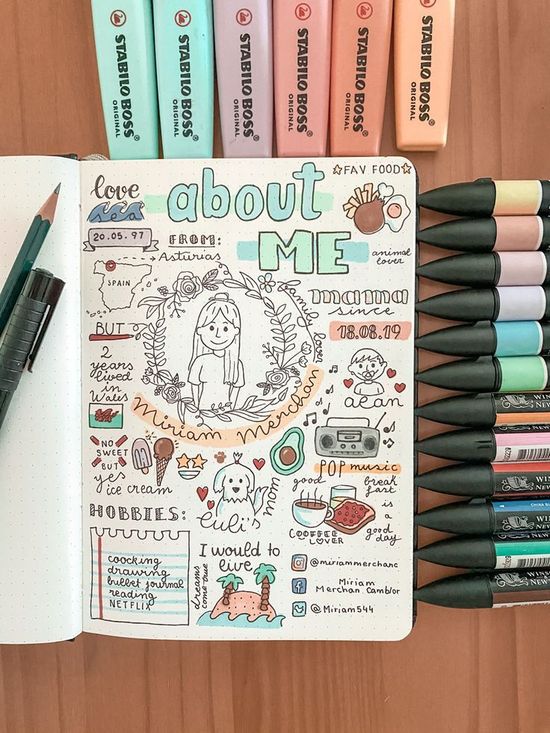 STABILO BOSS ORIGINAL
STABILO BOSS ORIGINAL
STABILO BOSS ORIGINAL
STABILO BOSS ORIGINAL
STABILO BOSS ORIGINAL
STABILO BOSS ORIGINAL
love
sea
about
ME
FAV FOOD
20.05.97
FROM:
Asturias
SPAIN
animal
lover
BUT
2
years
lived
in
Wales
family lover
Miriam Merchan
mama
since
18.08.19
alan
NO
SWEET
BUT
yes
ice cream
luli's
mom
POP music
good
break
fast
is
a
good
day
COOFFEE
LOVER
HOBBIES:
coocking
drawing
bullet journal
reading
NETFLIX
I would to
live
dreams
come true
@miriammerchanc
Miriam
Merchan Cambor
@Miriam544